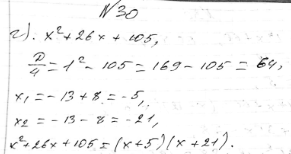 №30
г). x²+26x+105,
D/4 = 1² - 105 = 169 - 105 = 64,
x₁ = -13 + 8 = -5,
x₂ = -13 - 8 = -21,
x²+26x+105 = (x+5)(x+21).